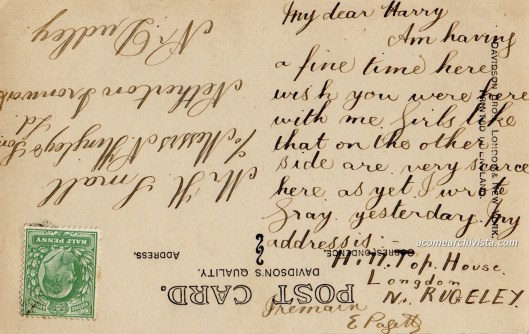 My dear Harry
Am having
a fine time here
wish you were here
with me girls like
that on the other
side are very scarce
here as yet I wrote
Gray yesterday. My
address is :-
H. Top House.
Longdon
Nr RUGELEY.
I remain
E Pagett
Mr H. Small
c/o Messrs N. Hingley & Sons
Ld
Netherton Ironworks
Nr Dudley
POST CARD.
DAVIDSON'S QUALITY.
CORRESPONDENCE.
ADDRESS.
DAVIDSON BROS. LONDON & NEW YORK.
PRINTED IN ENGLAND
HALF PENNY
acomearchivista.com